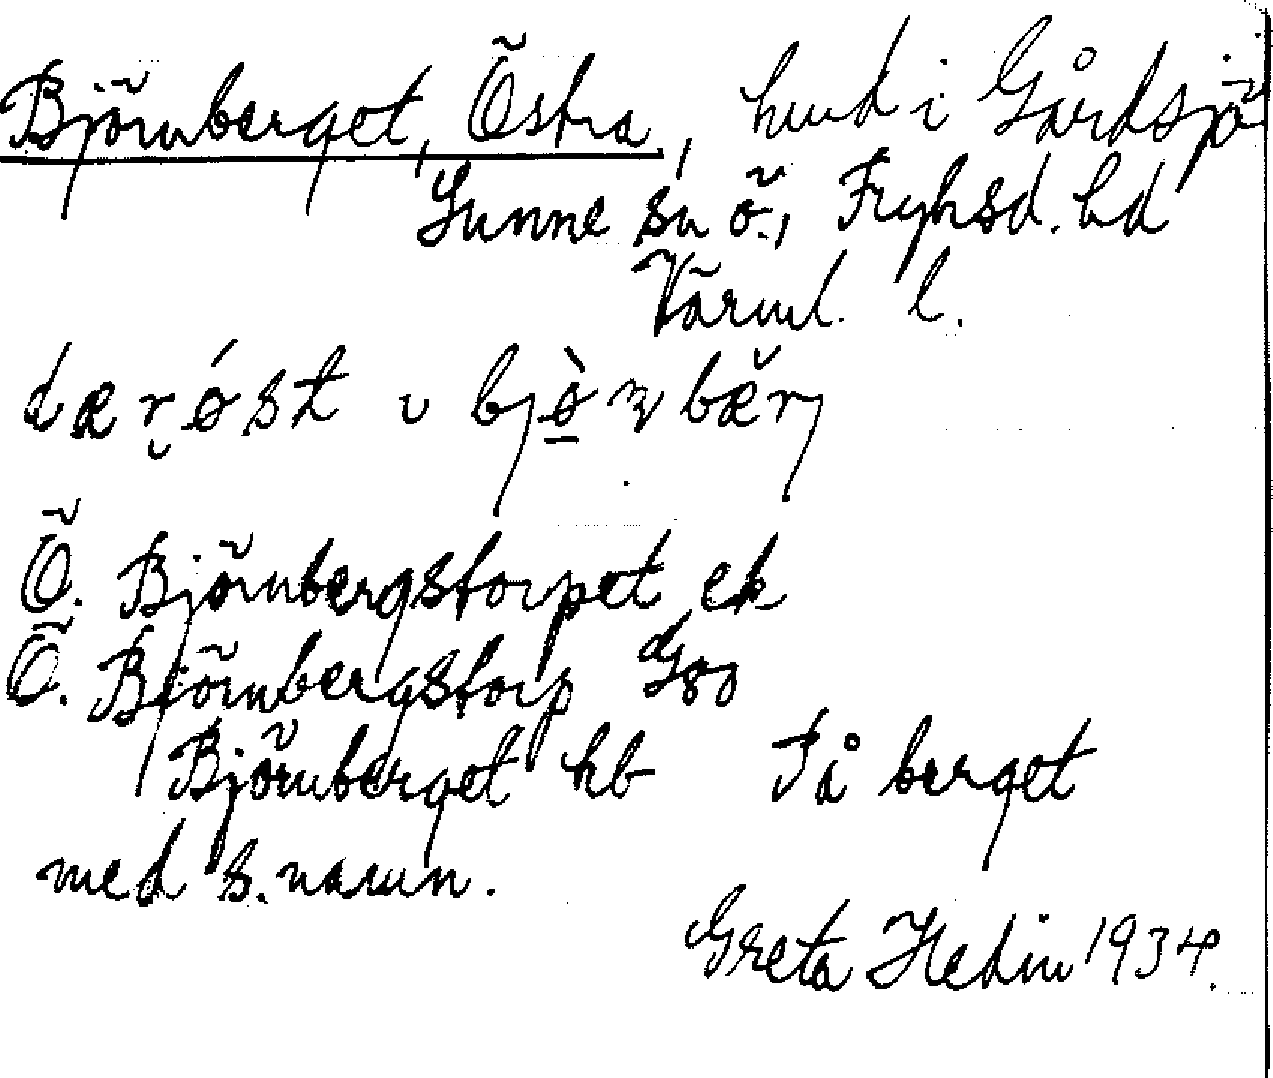 Björnberget, Östra, hmd i Gårdsjö
Sunne sn ö., Fryksd. hd
Värml. l.
dær øst ʋ bjø̀ɳbærj
Ö. Björnbergstorpet ek
Ö. Björnbergstorp
Björnberget hb På berget
med s. namn.
Greta Hedin 1934.